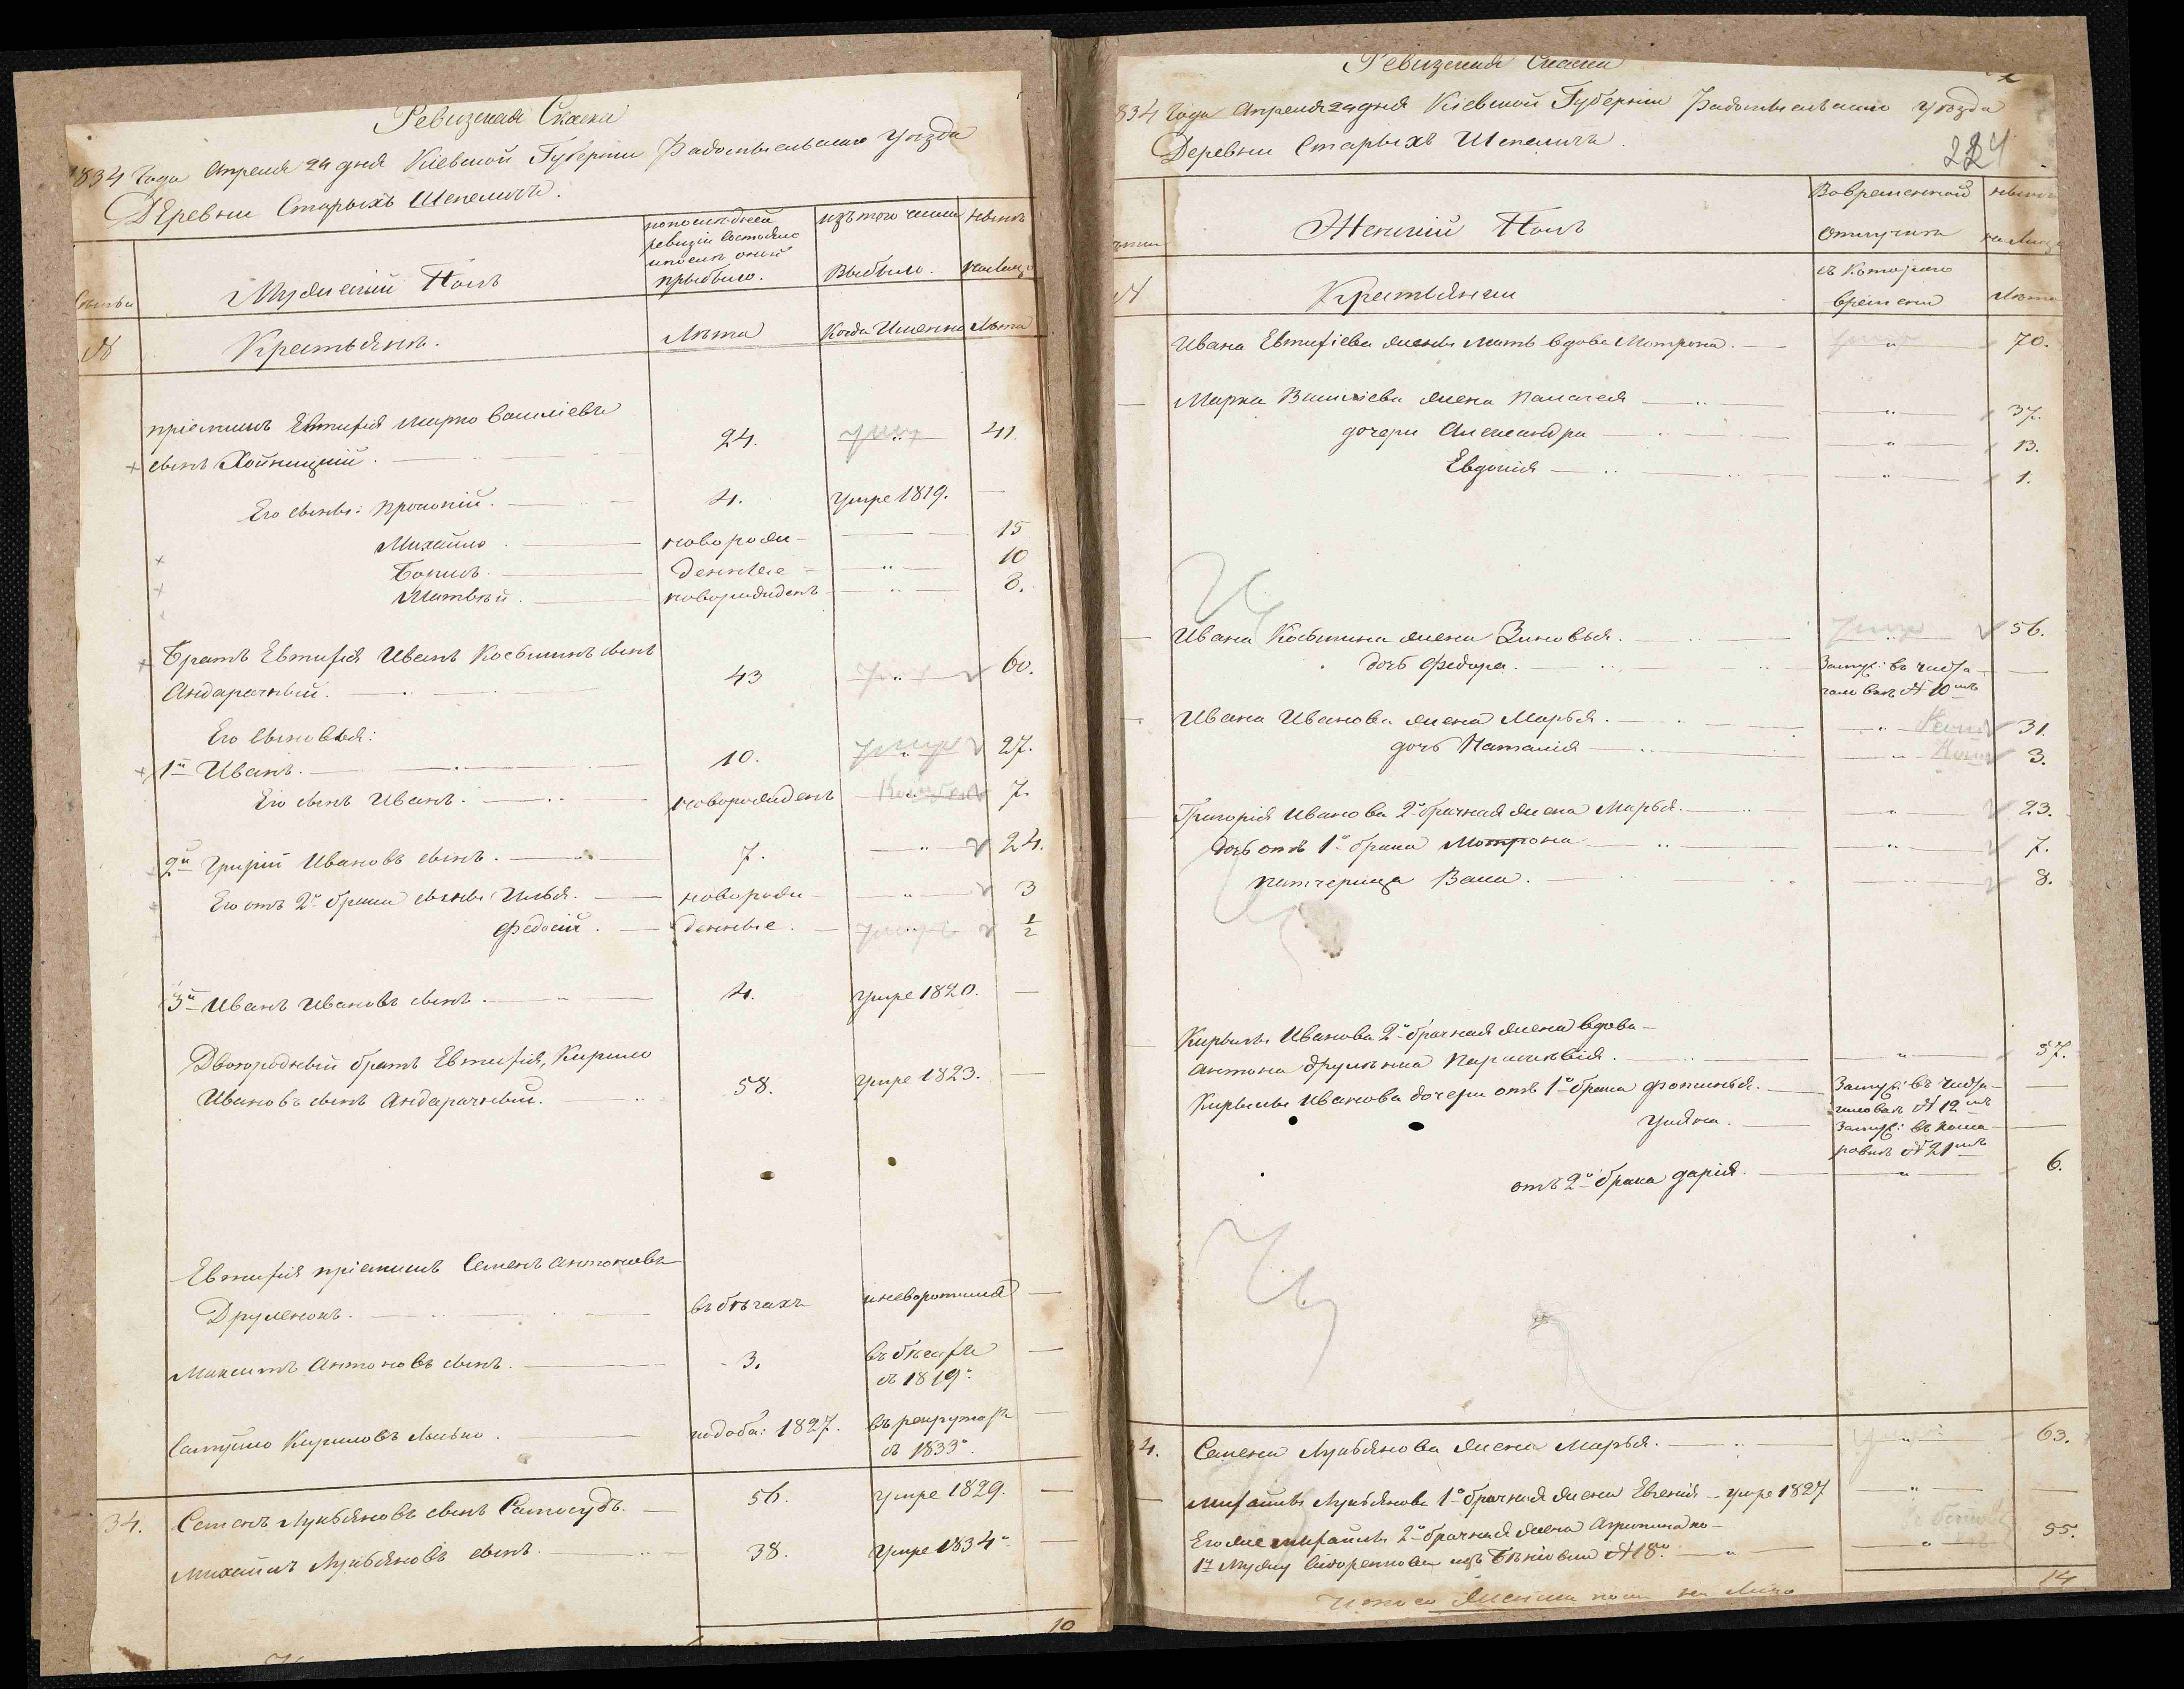 Ревизская Сказка
1834 Года Апреля 24 дня Кіевской Губерніи Радомысльскаго уѣзда
Деревни Старыхъ Шепеличъ.
Семьи
Мужескій Полъ
по последней
ревизіи состояло
и после оной
прыбыло.
изъ того числа
Выбыло.
нынѣ
на лицо
№
Крестьянѣ.
Лѣта
Когда Именно
Лѣта
пріемышъ Евтифія Марко Василіевъ
сынъ Хойницкій. 24. умер 41.
Его сыны: Прокопій. 4. умре 1819. —
Михайло новорож- 15
Борисъ. денные 10
Матвѣй. новорожденъ 8.
Братъ Евтифія Иванъ Косьминъ сынъ
Андарачный. 43 60.
Его сыновья:
1й Иванъ. 10. умер 27.
Его сынъ Иванъ. новорожденъ 7.
2й Григрій Ивановъ сынъ. 7. 24.
Его отъ 2го брака сыны Илья. новорож- 3
Федосій. денные. умеръ 1/2
3й Иванъ Ивановъ сынъ. 4. умре 1820. —
Двоюродный братъ Евтифія, Кирило
Ивановъ сынъ Андарачный. 58. умре 1823. —
Евтифія пріемышъ Семенъ Антоновъ
Друленокъ. въ бѣгахъ и неворотился —
Максимъ Антоновъ сынъ. 3. въ бѣгахъ —
съ 1819го
Самуйло Кириловъ Лысько. по доба: 1827. въ рекрутахъ —
съ 1833го.
34. Семенъ Лукьяновъ сынъ Самосудъ. 56. умре 1829. —
Михайлъ Лукьяновъ сынъ. 38. Умре 1834го —
10
Ревизская Сказка
834 Года Апреля 24 дня Кіевской Губерніи Радомысльскаго уѣзда
Деревни Старыхъ Шепеличъ.
224
Женскій Полъ
Во временной
отлучкѣ
нынѣ
на Лицо
№
Крестьянки
съ Котораго
времени
Лѣта
Ивана Евтифіева жены мать вдова Мотрона. 70.
Марка Василіева жена Палагея 37.
дочери Александра 13.
Евдокія 1.
Ивана Косьмина жена Зиновья. умер 56.
дочь Федора. Замуж: въ чиста- —
галовкѣ № 10мъ
Ивана Иванова жена Марья. 31.
дочь Наталія 3.
Григорія Иванова 2о брачная жена Марья. 23.
дочь отъ 1го брака Мотрона 7.
патчерица Васа. 8.
Кирылы Иванова 2о брачная жена вдова
Антона друленка Парасковія. 57.
Кирылы Иванова дочери отъ 1го брака Фотинья. Замуж: въ чиста- —
галовкѣ № 12мъ
Ульяна. Замуж: въ кома- —
ровкѣ № 21мъ
отъ 2го брака дарія. 6.
34. Семена Лукьянова жена Марья. 63.
Михайлы Лукьянова 1о брачная жена Евгенія — умре 1827
Его же Михайлы 2о брачная жена Агрипина по- 55.
1му мужу № 18го.
Итого Женска пола на Лицо 14